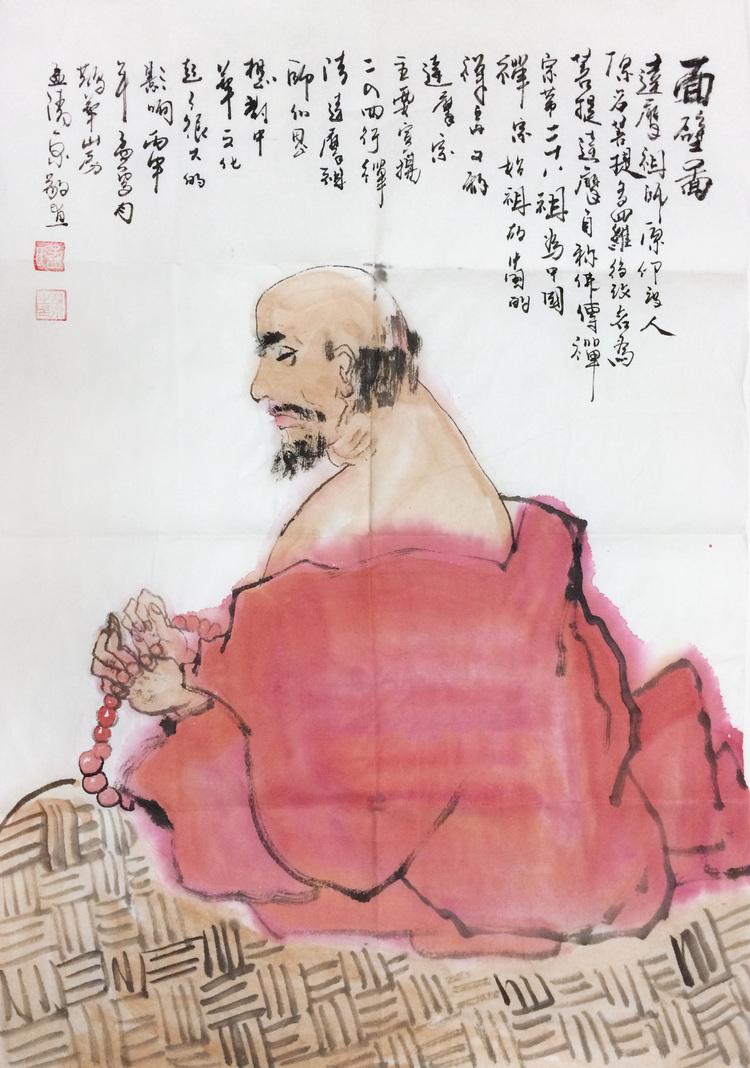 面壁图
達摩祖師原印度人
原名菩提多羅後改名為
菩提達摩自称佛傳禪
宗第二十八祖為中國
禪宗始祖故中国的
禅宗又称
達摩宗
主要宣揚
二入四行禪
法達摩祖
師的思
想對中
華文化
起了很大的
影响丙申
年